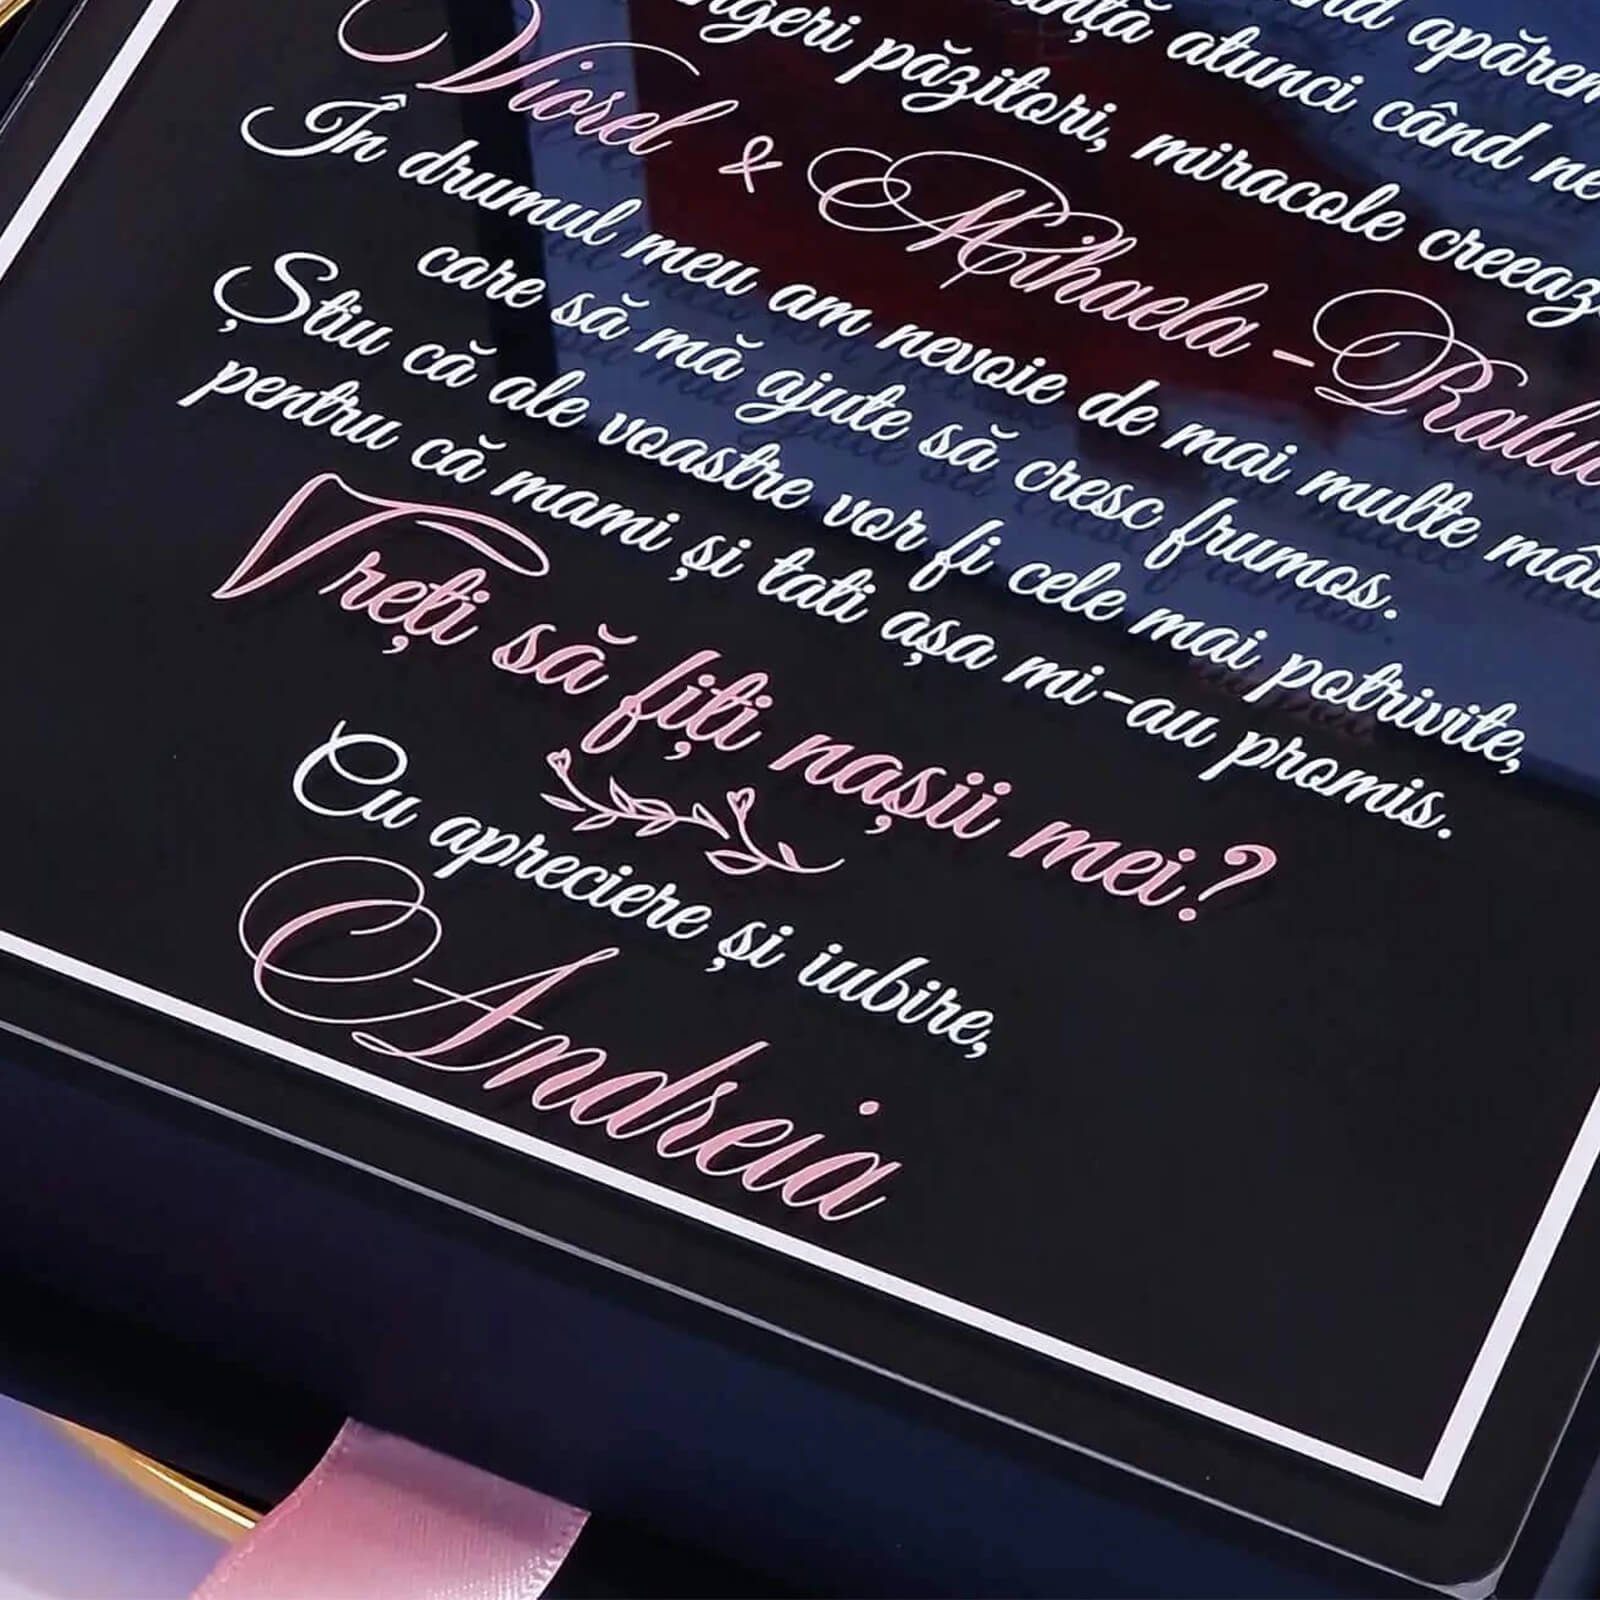 atunci când ne
păzitori, miracole creeaz
Viorel & Mihaela - Raluc
În drumul meu am nevoie de mai multe mâi
care să mă ajute să cresc frumos.
Știu că ale voastre vor fi cele mai potrivite,
pentru că mami și tati așa mi-au promis.
Vreți să fiți nașii mei?
Cu apreciere și iubire,
Andreia